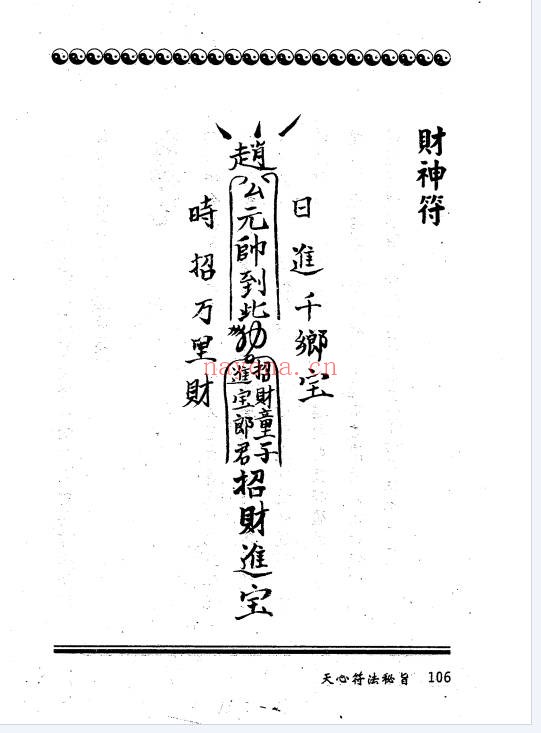 財神符
日進千鄉宝
趙公元帥到此
招財童子
進宝郎君
招財進宝
時招万里財
nayona.cn
天心符法秘旨 106